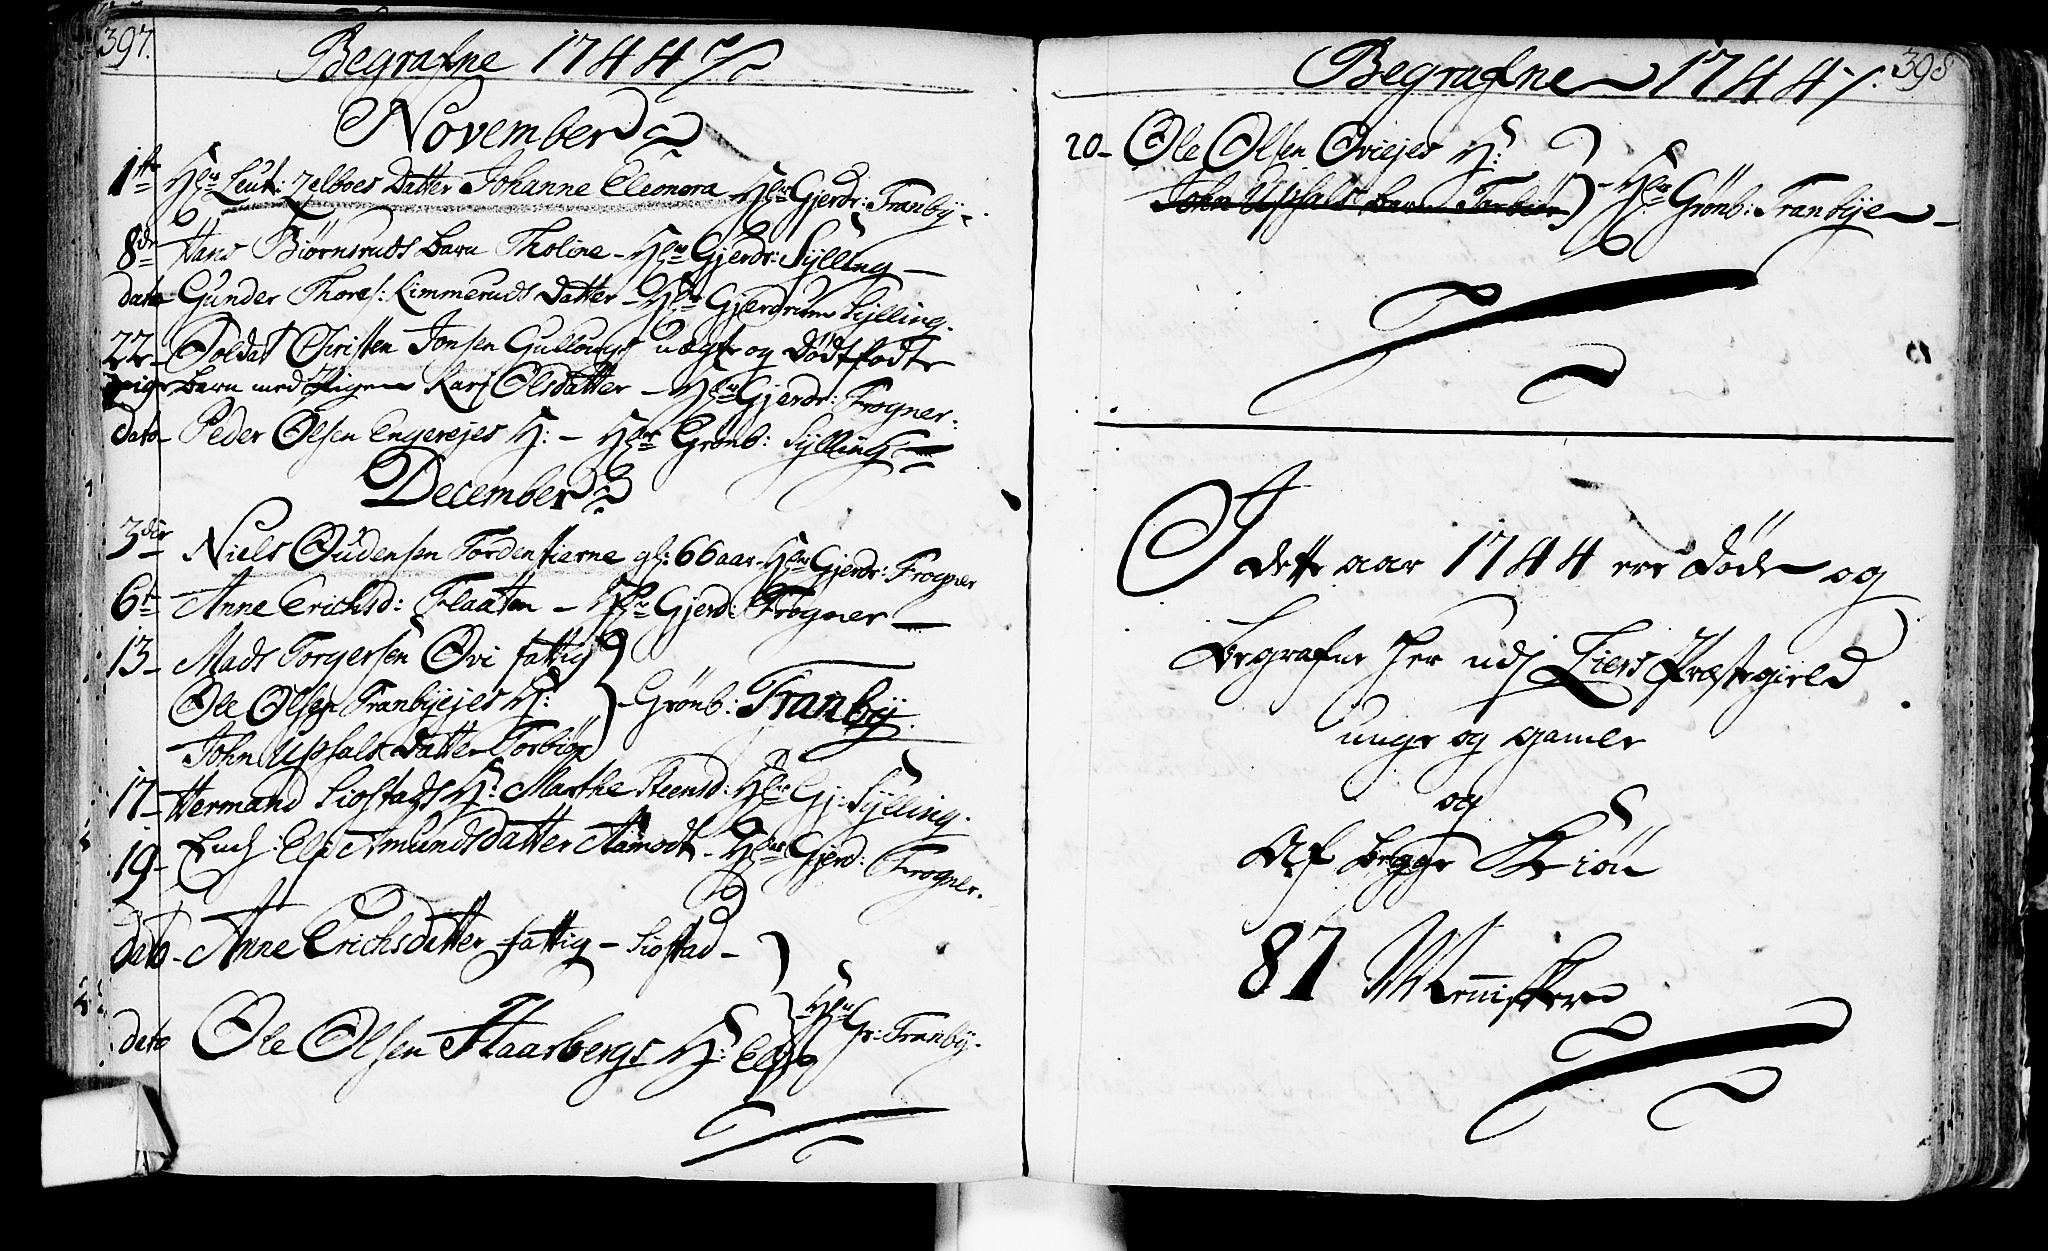 397.
Begrafne 1744
November
1te Hr Leut: Zelboes Datter Johanne Eleonora Hr Gjerdr: Tranby
8de Hans Biørnsruds barn Tholine - Hr Gjerdr: Sylling
dato Gunder Thores: Kimmeruds Datter - Hr Gjerdrum Sylling.
22 Soldat Christen Jonsen Gullougs uægte og dødfødte
barn med Pigen Kari Olsdatter - Hr Gjerdr: Frogner.
dato Peder Olsen Engerejes H: - Hr Grønb: Sylling
December
3die Niels Oudensen Tordenstierne gl: 66 aar - Hr Gjerdr: Frogner
6te Anne Erichsd: Flaaten - Hr Gjerd: Frogner
13 Mads Torgersen Ovi fattig
Ole Olsen Tranbyejes H: - Grønb: Tranby.
John Upsals Datter Torbiør
17 Hermand Siostads H: Marthe Steensd: Hr Gj: Sylling.
19 Else Amundsdatter Aamodt - Hr Gjerd: Frogner.
dato - Anne Erichsdatter fattig - Siostad -
dato Ole Olsen Haarbergs H: Else Hr Gr: Tranby.
Begrafne 1744 398
20 Ole Olsen Oviejes H:
John Upsals barn Torbiør - Hr Grønb: Tranbye
I dette aar 1744 ere døde og
begrafne her udj Liers Præstegield
unge og gamle
og
Af begge Kiøn
87 Mennisker